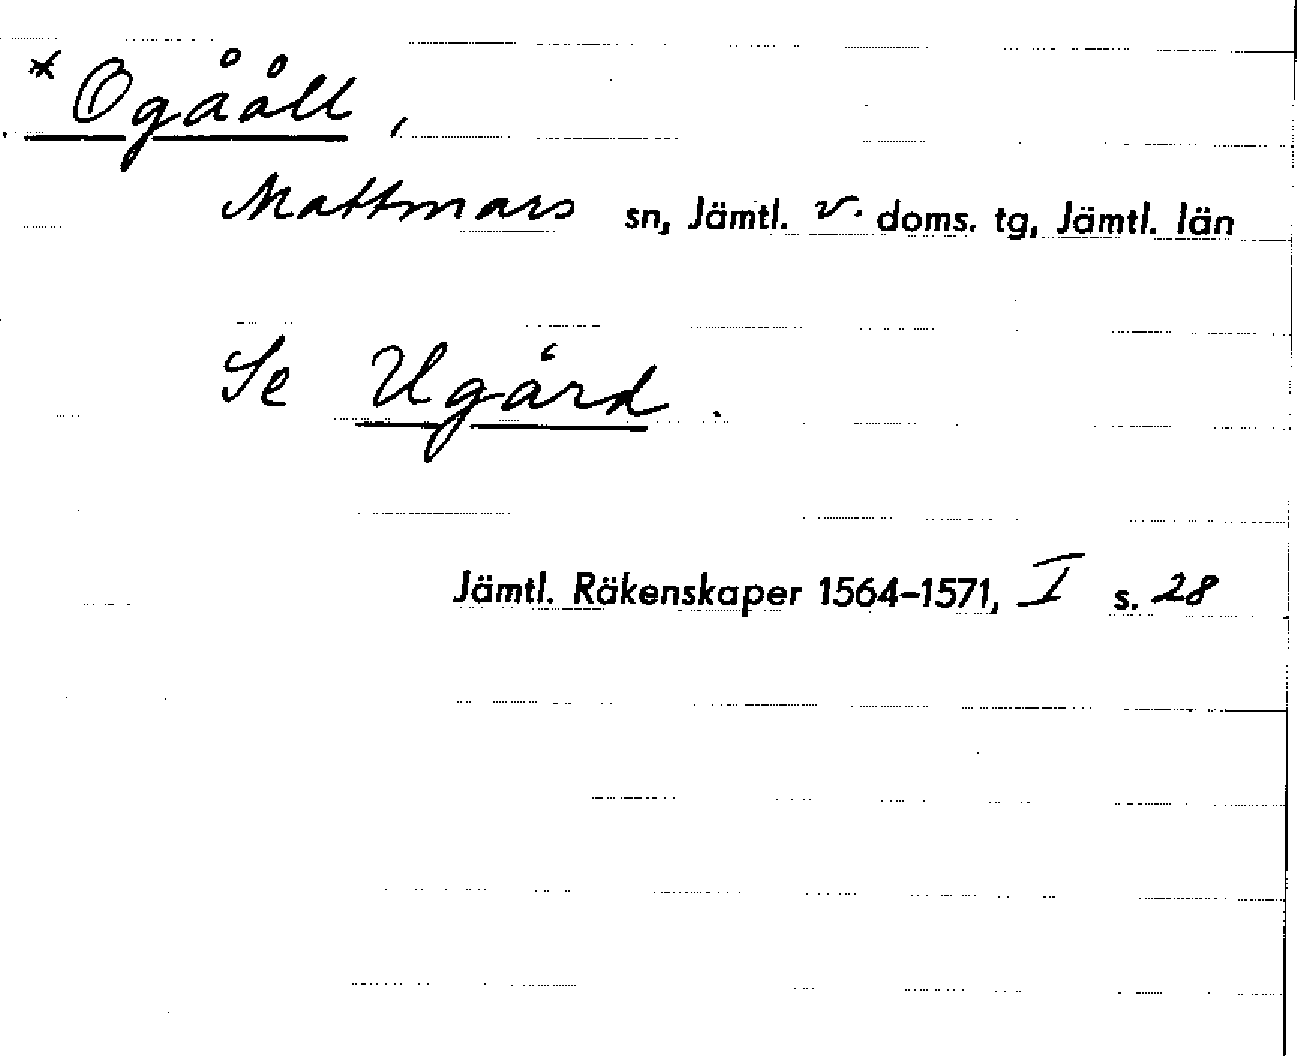 * Ogååll,
Mattmars sn, Jämtl. v. doms. tg, Jämtl. län
Se Ugård.
Jämtl. Räkenskaper 1564–1571, I s. 28